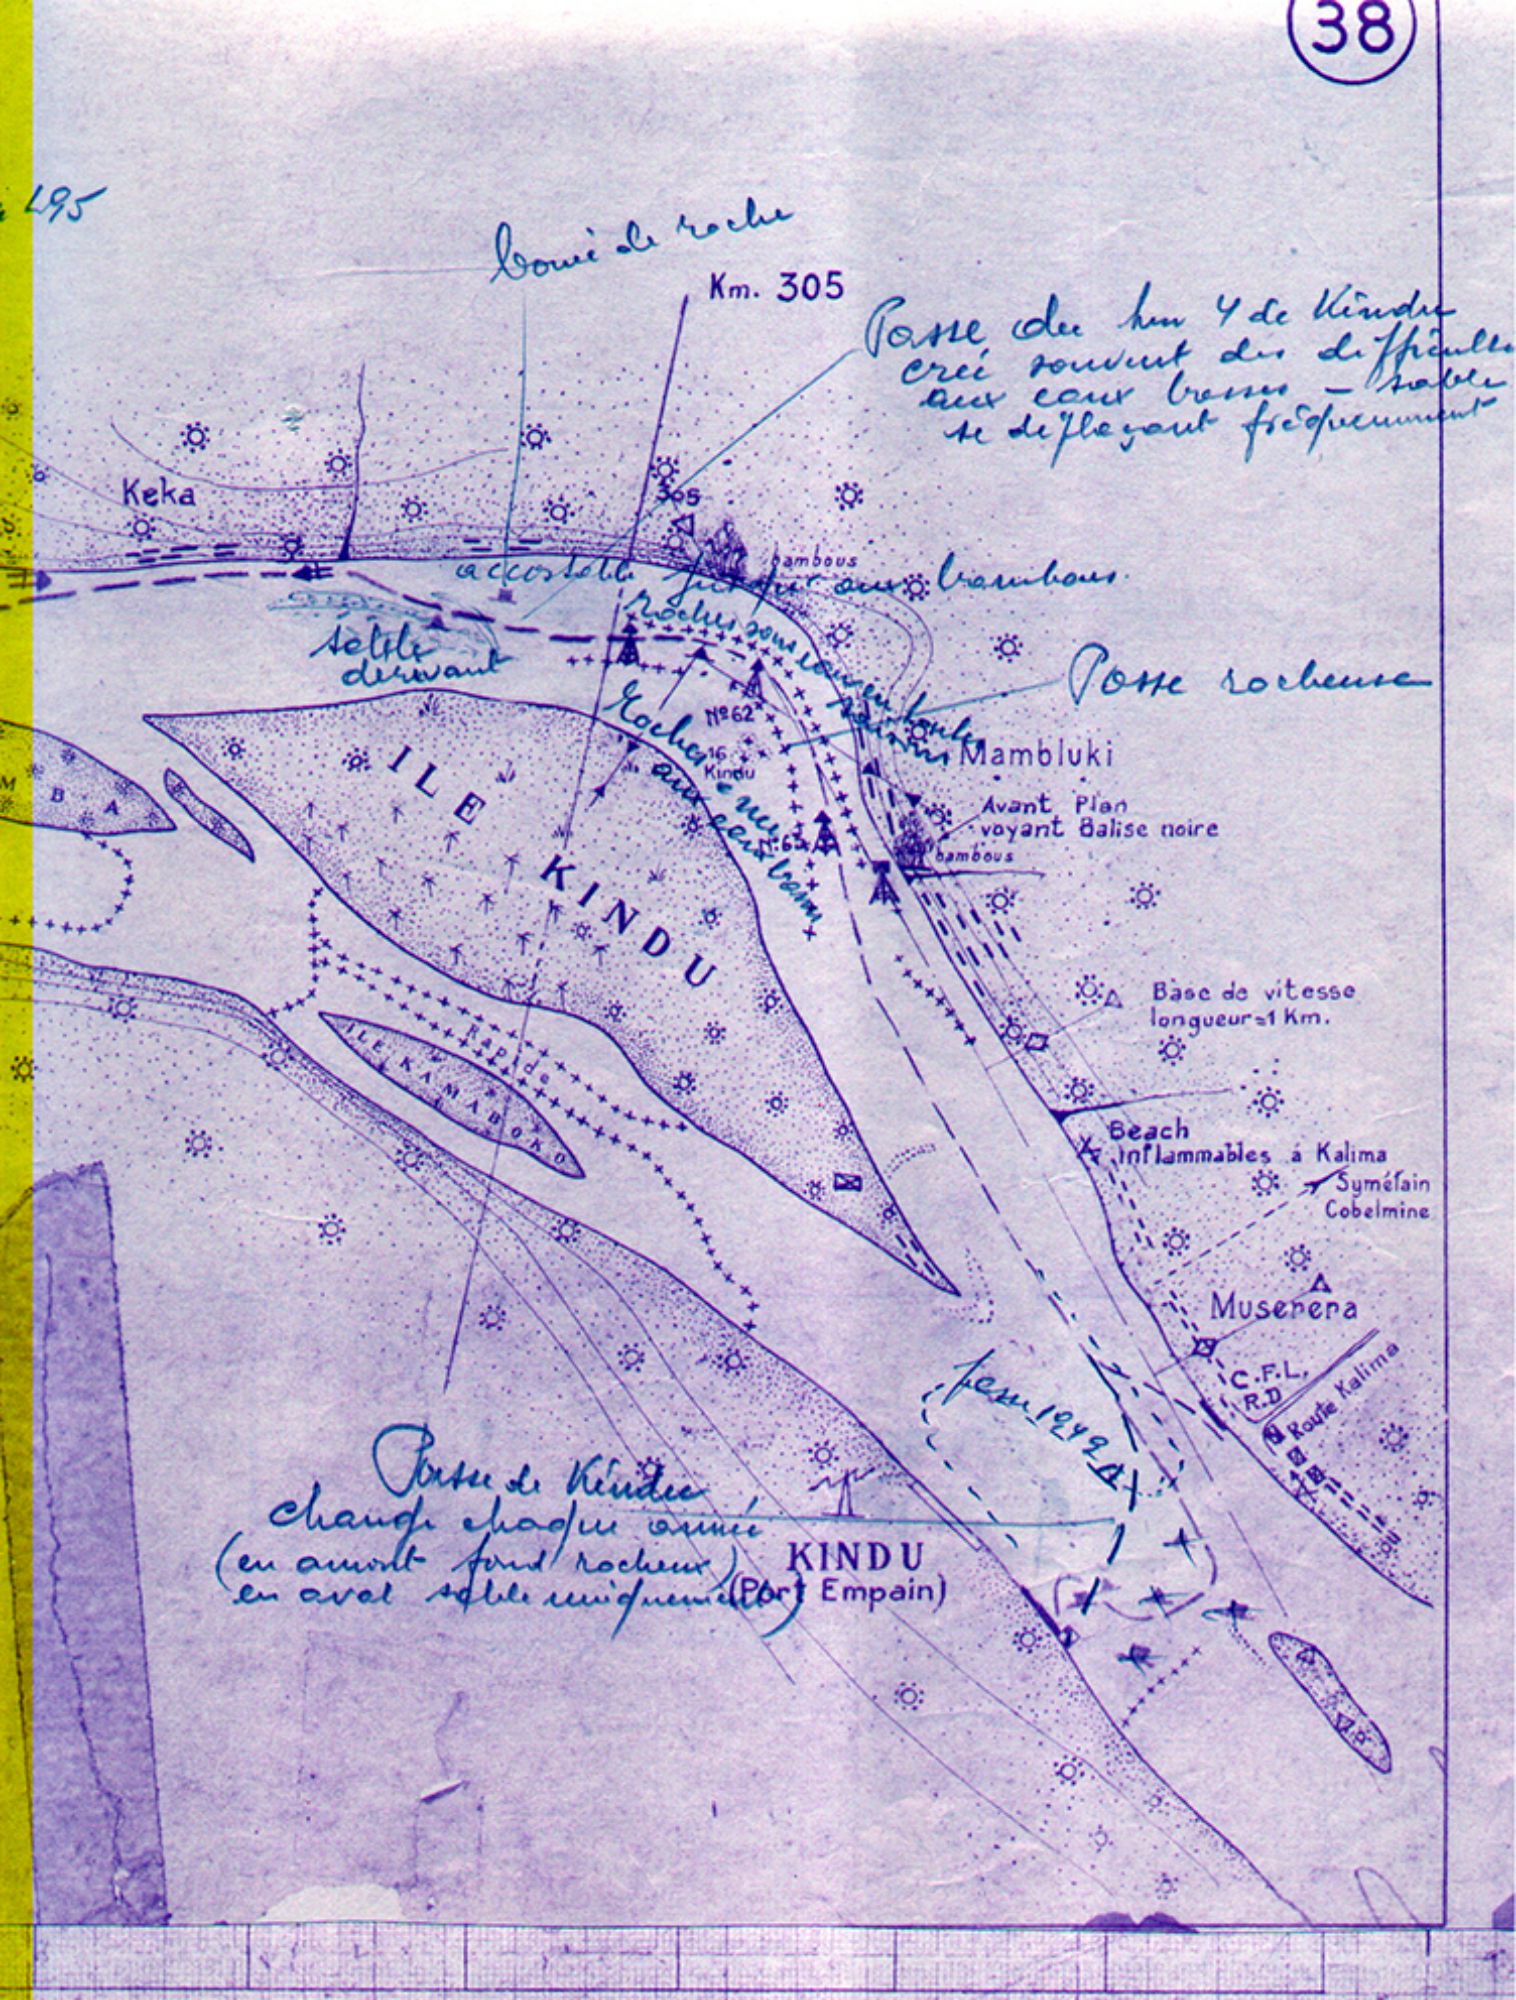 38
295
boueé de roche
Km. 305
Passe du km 4 de Kindu
créé souvent des difficultés
aux eaux basses - sable
se déplaçant fréquemment
Keka
305
bambous
accostable jusqu'aux bambous.
roches sous eau en toutes
saisons
sable
dérivant
Passe rocheuse
Roches à nu
aux eaux basses
Nº62
16
Kindu
Nº63
Mambluki
Avant Plan
voyant Balise noire
bambous
MBA
ILE KINDU
Base de vitesse
longueur=1 Km.
Rapide
ILE KAMABOKO
Beach
Inflammables à Kalima
Symétain
Cobelmine
Muserera
C.F.L.
R.D
Route Kalima
1949
Passe de Kindu
change chaque année
(en amont fond rocheux)
en aval sable uniquement)
KINDU
(Port Empain)